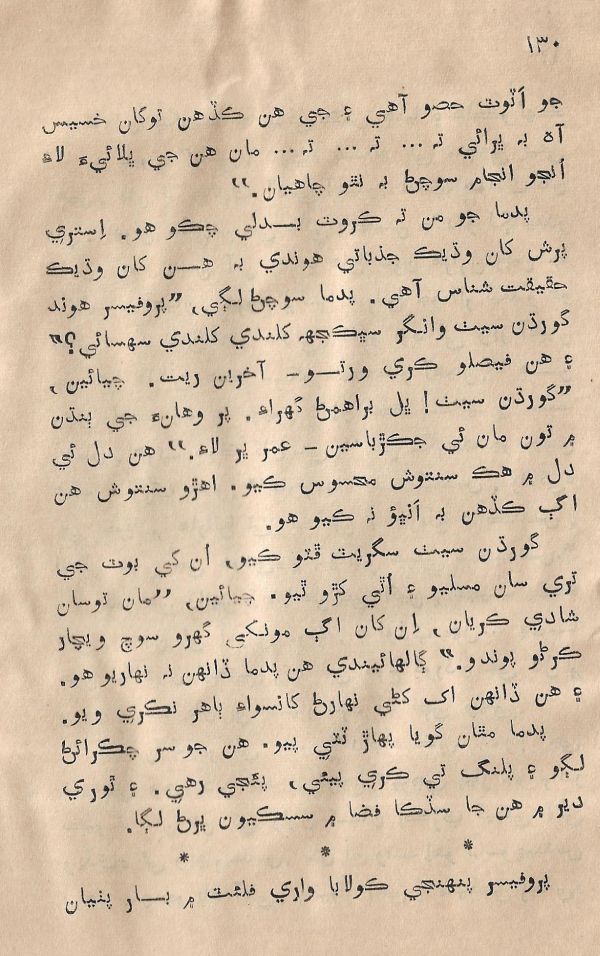 ١٣٠
جو اَٽوٽ حصو آهي ۽ جي هن ڪڏهن توکان خسيس
آه به ڀرائي ته ... ته ... ته ... مان هن جي ڀلائيءَ لاءِ
اُنجو انجام سوچڻ به نٿو چاهيان.“
پدما جو من ته ڪروٽ بدلي چڪو هو. اِستري
پرش کان وڌيڪ جذباتي هوندي به هن کان وڌيڪ
حقيقت شناس آهي. پدما سوچڻ لڳي, ”پروفيسر هوند
گورڌن سيٺ وانگر سڀڪجهہ کلندي کلندي سهسائي؟“
۽ هن فيصلو ڪري ورتو – آخرين ريت. چيائين,
”گورڌن سيٺ! ڀل براهمڻ گهراءِ. پر وهانءَ جي ٻنڌن
۾ تون مان ئي جڪڙباسين – عمر ڀر لاءِ.“ هن دل ئي
دل ۾ هڪ سنتوش محسوس ڪيو. اهڙو سنتوش هن
اڳ ڪڏهن به اَنڀؤ نہ ڪيو هو.
گورڌن سيٺ سگريٽ ڦٽو ڪيو, اُن کي بوٽ جي
تري سان مسليو ۽ اُٿي کڙو ٿيو. چيائين, ”مان توسان
شادي ڪريان, اِن کان اڳ مونکي گهرو سوچ ويچار
ڪرڻو پوندو.“ ڳالهائيندي هن پدما ڏانهن نہ نهاريو هو.
۽ هن ڏانهن اک کڻي نهارڻ کانسواءِ ٻاهر نڪري ويو.
پدما مٿان گويا پهاڙ ٽٽي پيو. هن جو سر چڪرائڻ
لڳو ۽ پلنگ تي ڪري پيئي, پئجي رهي. ۽ ٿوري
دير ۾ هن جا سڏڪا فضا ۾ سسڪيون ڀرڻ لڳا.
* * *
پروفيسر پنهنجي ڪولابا واري فلئٽ ۾ بسار پٺيان